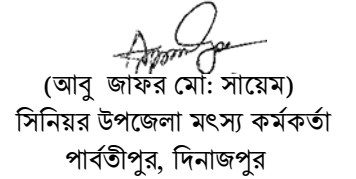 (আবু জাফর মো: সায়েম)
সিনিয়র উপজেলা মৎস্য কর্মকর্তা
পার্বতীপুর, দিনাজপুর